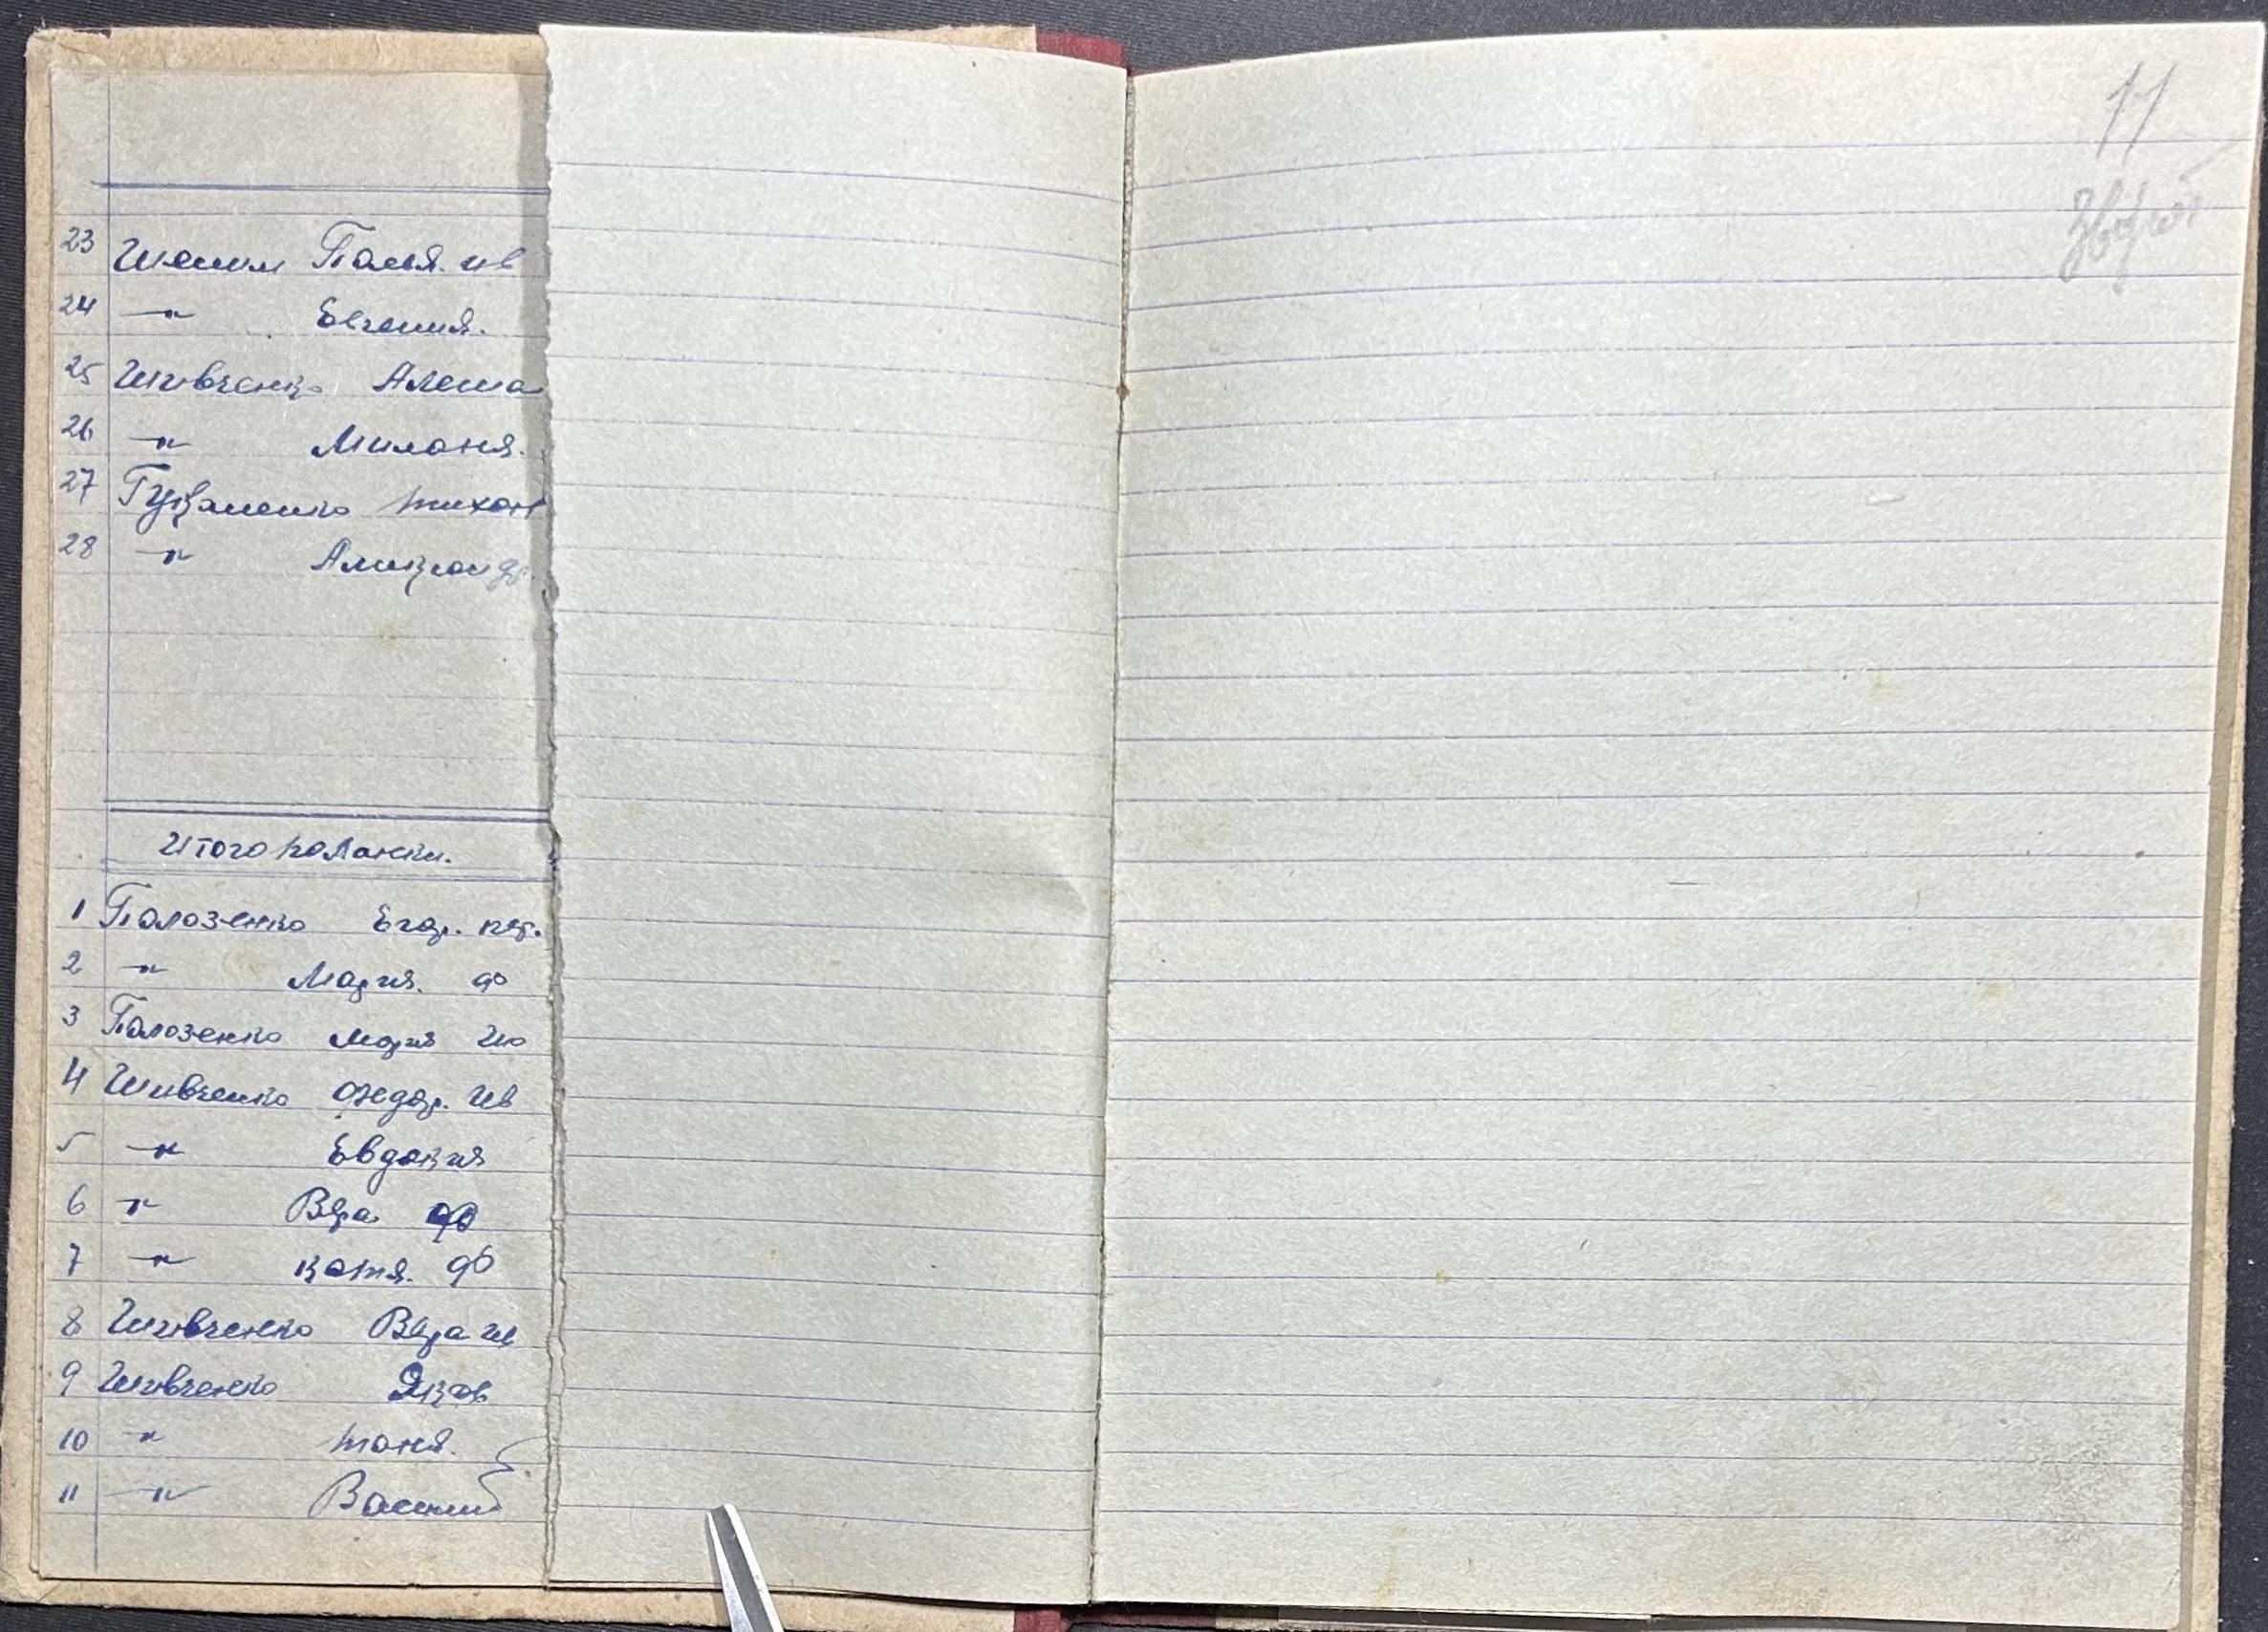 23 Шелим Поля. ив
24 —"— Евгения.
25 Шивченко Алеша
26 —"— Миланя.
27 Гузаненко Тихон
28 —"— Александр.
Итого
1 Полозенко Егор. пет.
2 —"— Мария. ф
3 Полозенко Мария Ил
4 Шивченко Федор. Ив
5 —"— Евдокия
6 —"— Вера ф
7 —"— Катя. ф
8 Шивченко Вера ив
9 Шивченко Яков
10 —"— Таня.
11 —"— Василий
11